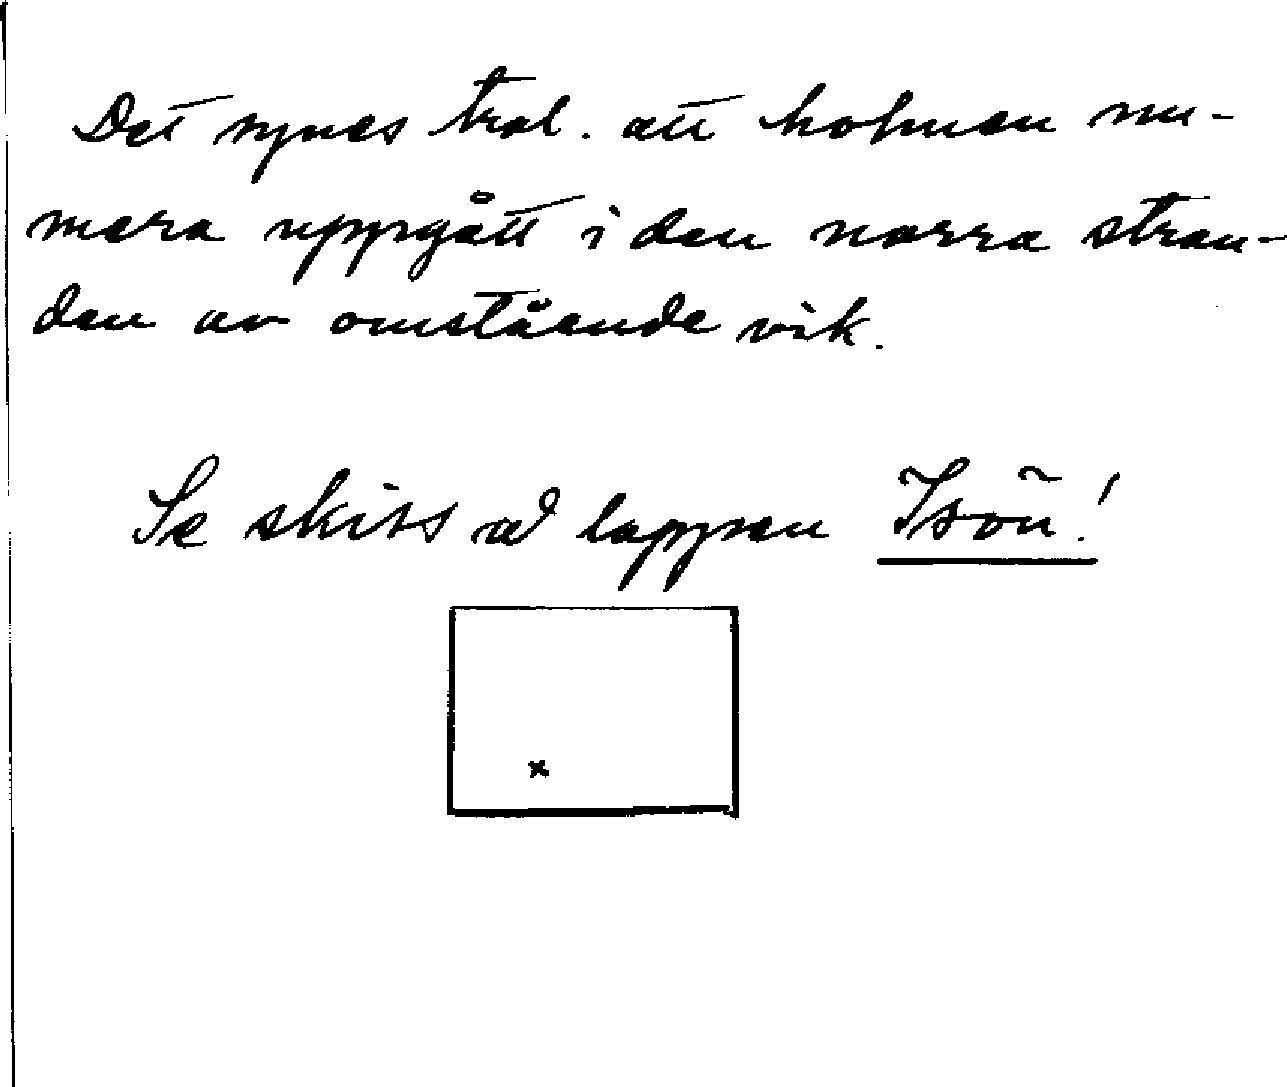 Det synes trol. att holmen nu-
mera uppgått i den norra stran-
den av omstående vik.
Se skiss å lappen Isön!
x